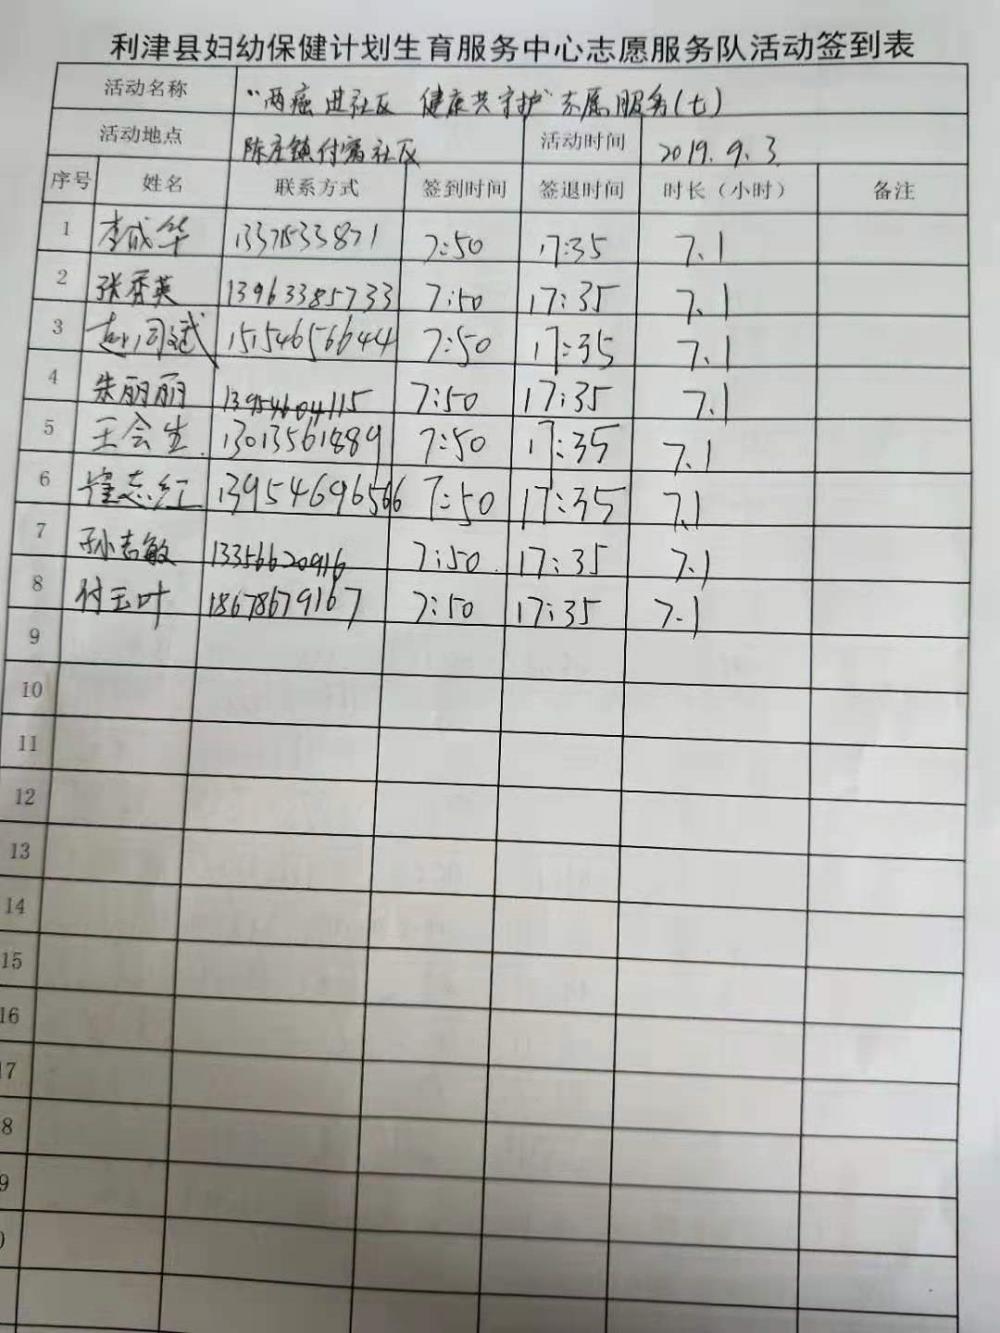 利津县妇幼保健计划生育服务中心志愿服务队活动签到表
活动名称 "两癌进社区 健康共守护"志愿服务(七)
活动地点 陈庄镇付窝社区 活动时间 2019.9.3
序号 姓名 联系方式 签到时间 签退时间 时长（小时） 备注
1 李成华 13375433871 7:50 17:35 7.1
2 张秀英 13963385733 7:50 17:35 7.1
3 赵同斌 15154656644 7:50 17:35 7.1
4 朱丽丽 13954604115 7:50 17:35 7.1
5 王会生 13013561889 7:50 17:35 7.1
6 崔志红 13954696566 7:50 17:35 7.1
7 孙志敏 13356620916 7:50 17:35 7.1
8 付玉叶 18678679167 7:50 17:35 7.1
9
10
11
12
13
14
15
16
7
8
9
0